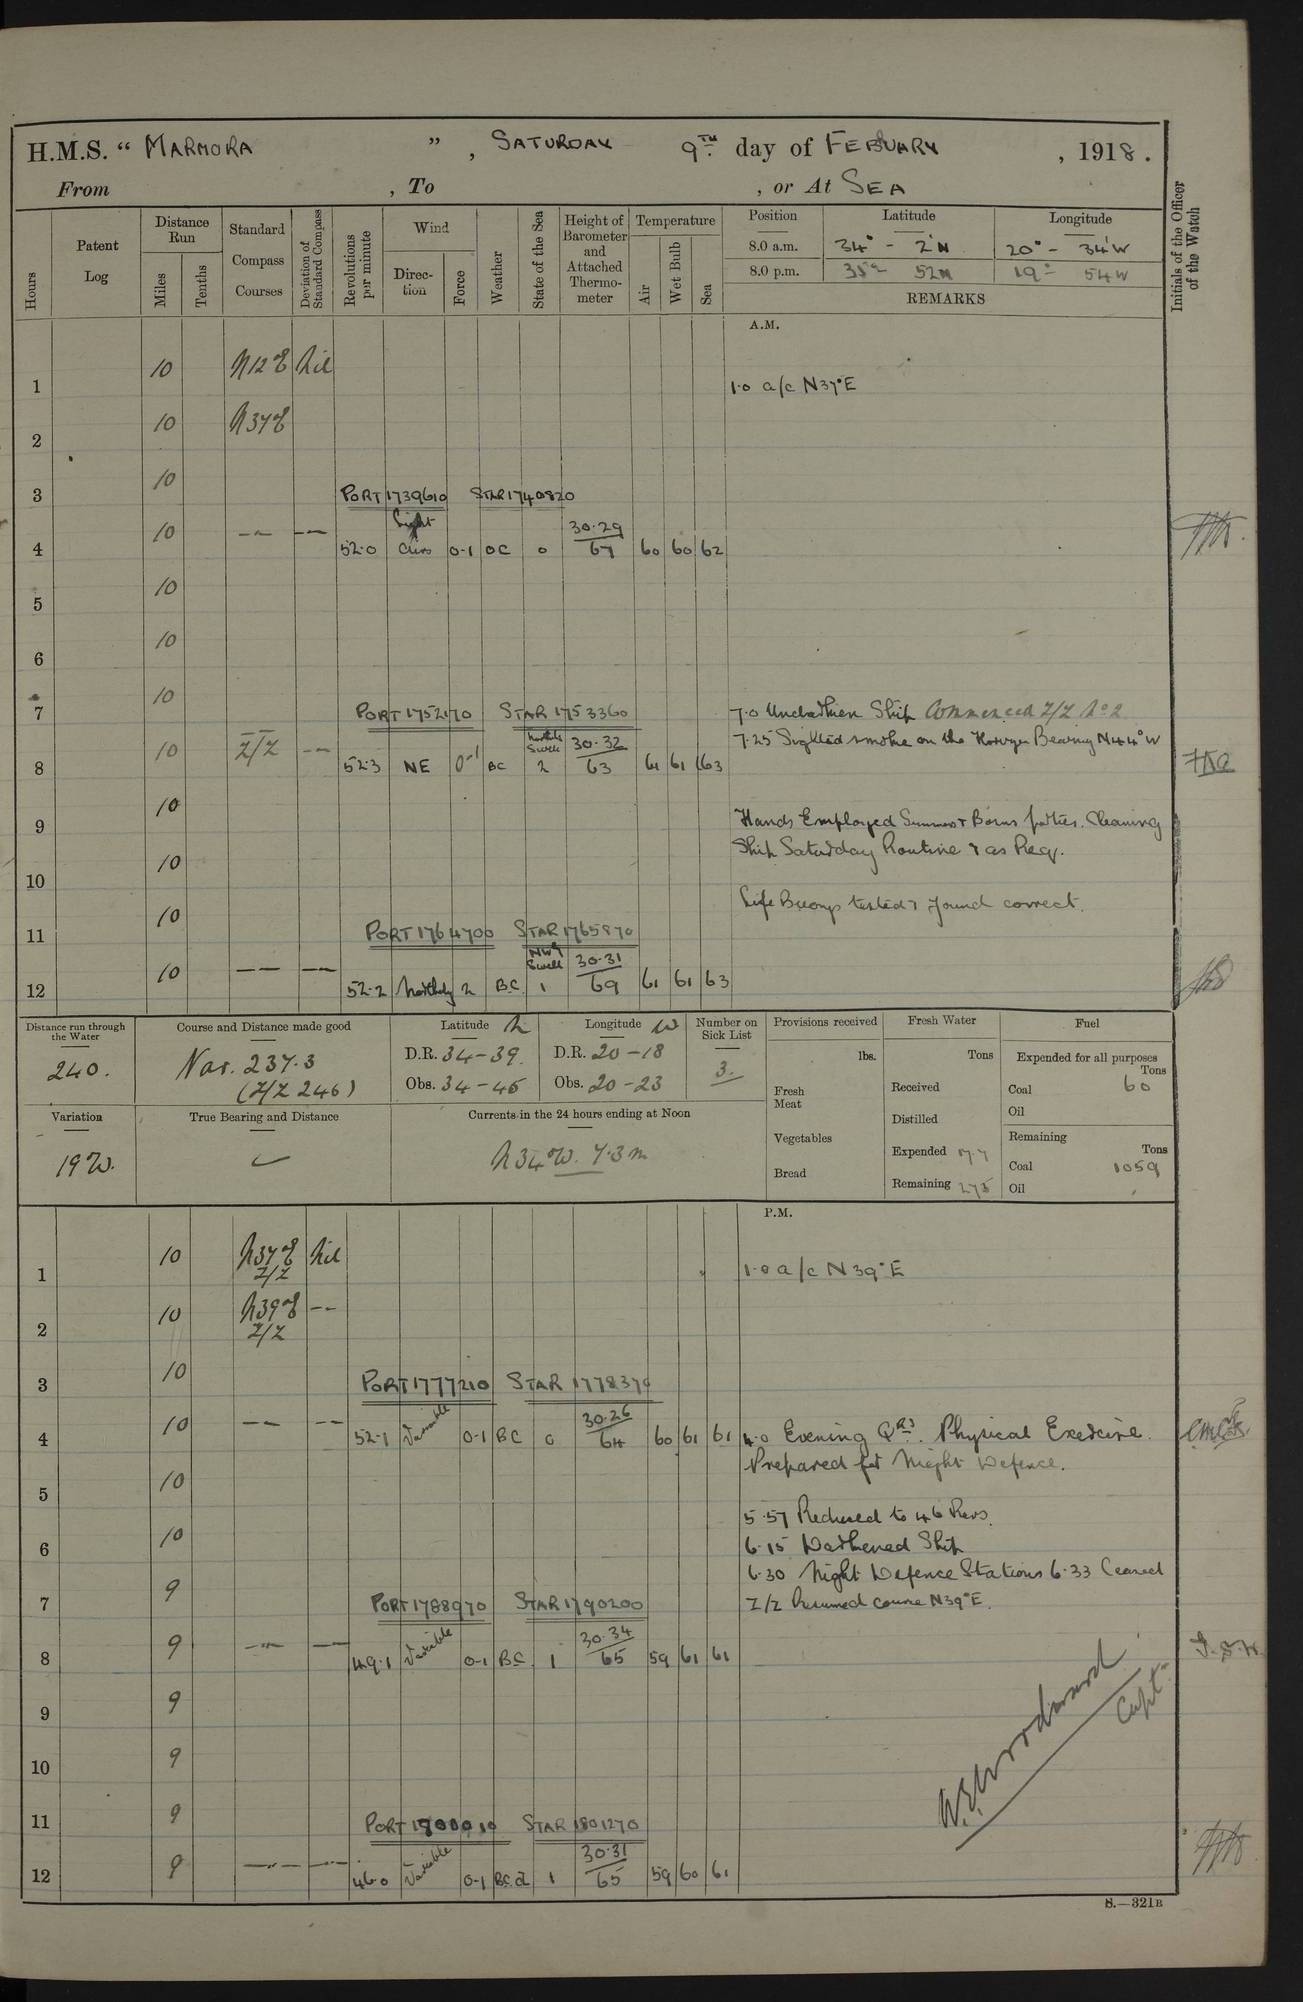 H.M.S. “ MARMORA ” , SATURDAY 9TH day of FEBUARY , 1918.
From , To , or At SEA
Hours
Patent Log
Distance Run
Miles
Tenths
Standard Compass Courses
Deviation of Standard Compass
Revolutions per minute
Wind
Direction
Force
Weather
State of the Sea
Height of Barometer and Attached Thermometer
Temperature
Air
Wet Bulb
Sea
Position Latitude Longitude
8.0 a.m. 34° - 2'N 20° - 34'W
8.0 p.m. 35° - 52N 19° - 54W
REMARKS
Initials of the Officer of the Watch
A.M.
1 10 N12E Nil 1.0 a/c N37°E
2 10 N37E
3 10 PORT 1739610 STAR 1740820
4 10 -- -- 52.0 Light airs 0-1 OC 0 30.29 67 60 60 62
5 10
6 10
7 10 PORT 1752170 STAR 1753360 7.0 Undarken Ship Commenced Z/Z No 2
7.25 Sighted smoke on the Horizon Bearing N44°W
8 10 Z/Z -- 52.3 NE 0-1 BC Swell 2 30.32 63 61 61 63
9 10 Hands Employed Cleaning
Ship Saturday Routine & as Req.
10 10
Life Buoys tested & found correct.
11 10 PORT 1764700 STAR 1765870
12 10 -- -- 52.2 Northerly 2 B.C. NWY Swell 1 30.31 69 61 61 63
Distance run through the Water
240.
Course and Distance made good
237.3
(Z/Z 246)
Latitude N
D.R. 34-39.
Obs. 34-45
Longitude W
D.R. 20-18
Obs. 20-23
Number on Sick List
3.
Provisions received
lbs.
Fresh Meat
Vegetables
Bread
Fresh Water
Tons
Received
Distilled
Expended 77
Remaining 275
Fuel
Expended for all purposes
Tons
Coal 60
Oil
Remaining
Tons
Coal 1059
Oil
Variation
19W.
True Bearing and Distance
Currents in the 24 hours ending at Noon
N34°W. 7.3m
P.M.
1 10 N37E Z/Z Nil 1.0 a/c N39°E
2 10 N39E Z/Z --
3 10 PORT 1777210 STAR 1778370
4 10 -- -- 52.1 Variable 0-1 BC 0 30.26 64 60 61 61 4.0 Evening Qrs. Physical Exercise.
Prepared for Night Defence.
5 10
5.57 Reduced to 46 Revs.
6 10 6.15 Darkened Ship
6.30 Night Defence Stations 6.33 Ceased
7 9 PORT 1788970 STAR 1790200 Z/Z Resumed course N39°E.
8 9 -- -- 49.1 Variable 0-1 B.C. 1 30.34 65 59 61 61
9 9
10 9
11 9 PORT 1800010 STAR 1801270
12 9 -- -- 46.0 Variable 0-1 B.C.d 1 30.31 65 59 60 61
W.E. Woodward
Capt.
S.—321B